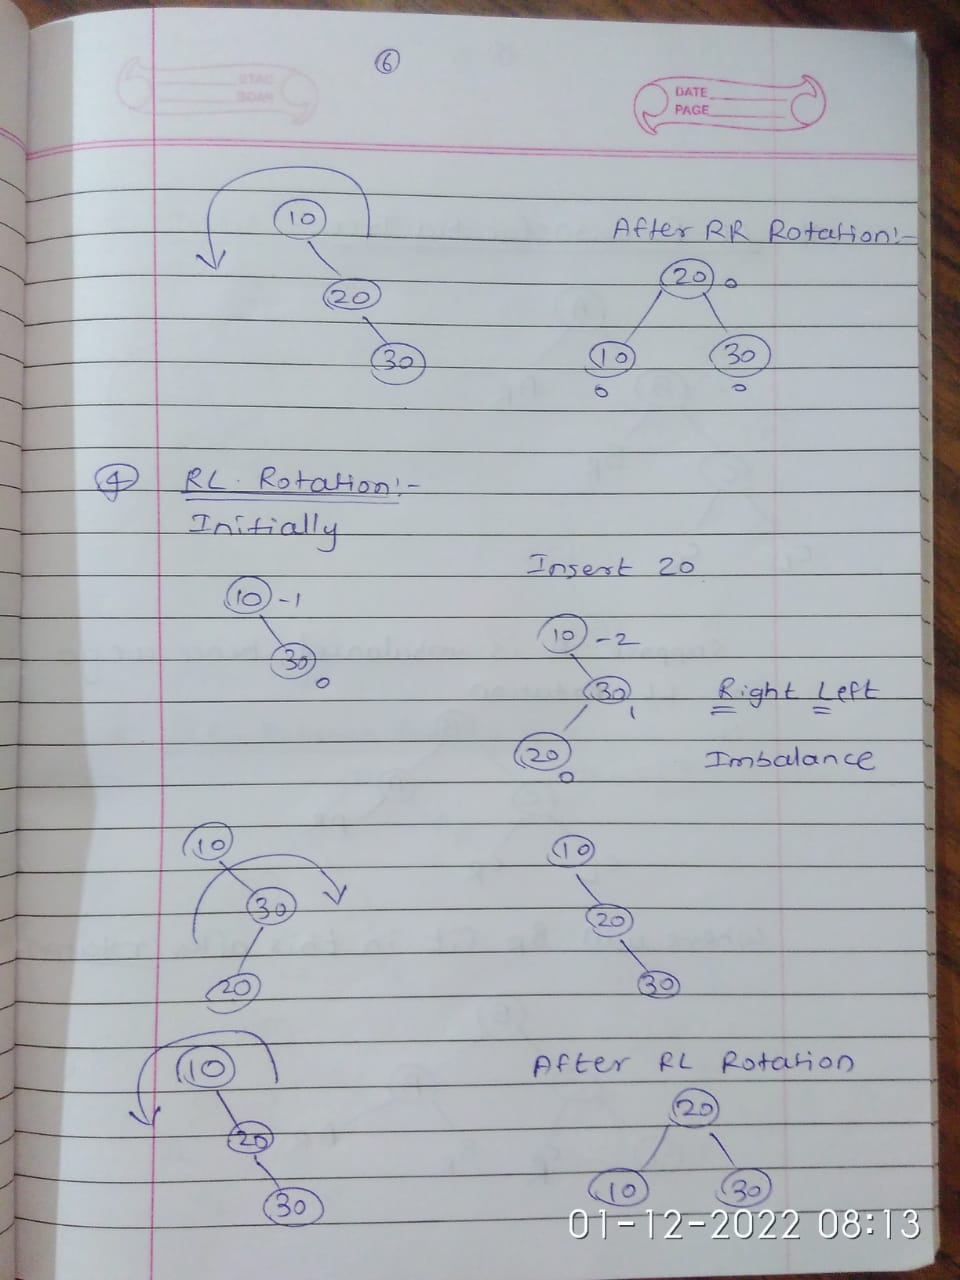 6
DATE
PAGE
10
After RR Rotation:-
20
30
20 0
10
30
0
0
4 RL Rotation:-
Initially
Insert 20
10 -1
30
0
10 -2
30
1
20
0
Right Left
Imbalance
10
30
20
10
20
30
10
20
30
After RL Rotation
20
10
30
01-12-2022 08:13